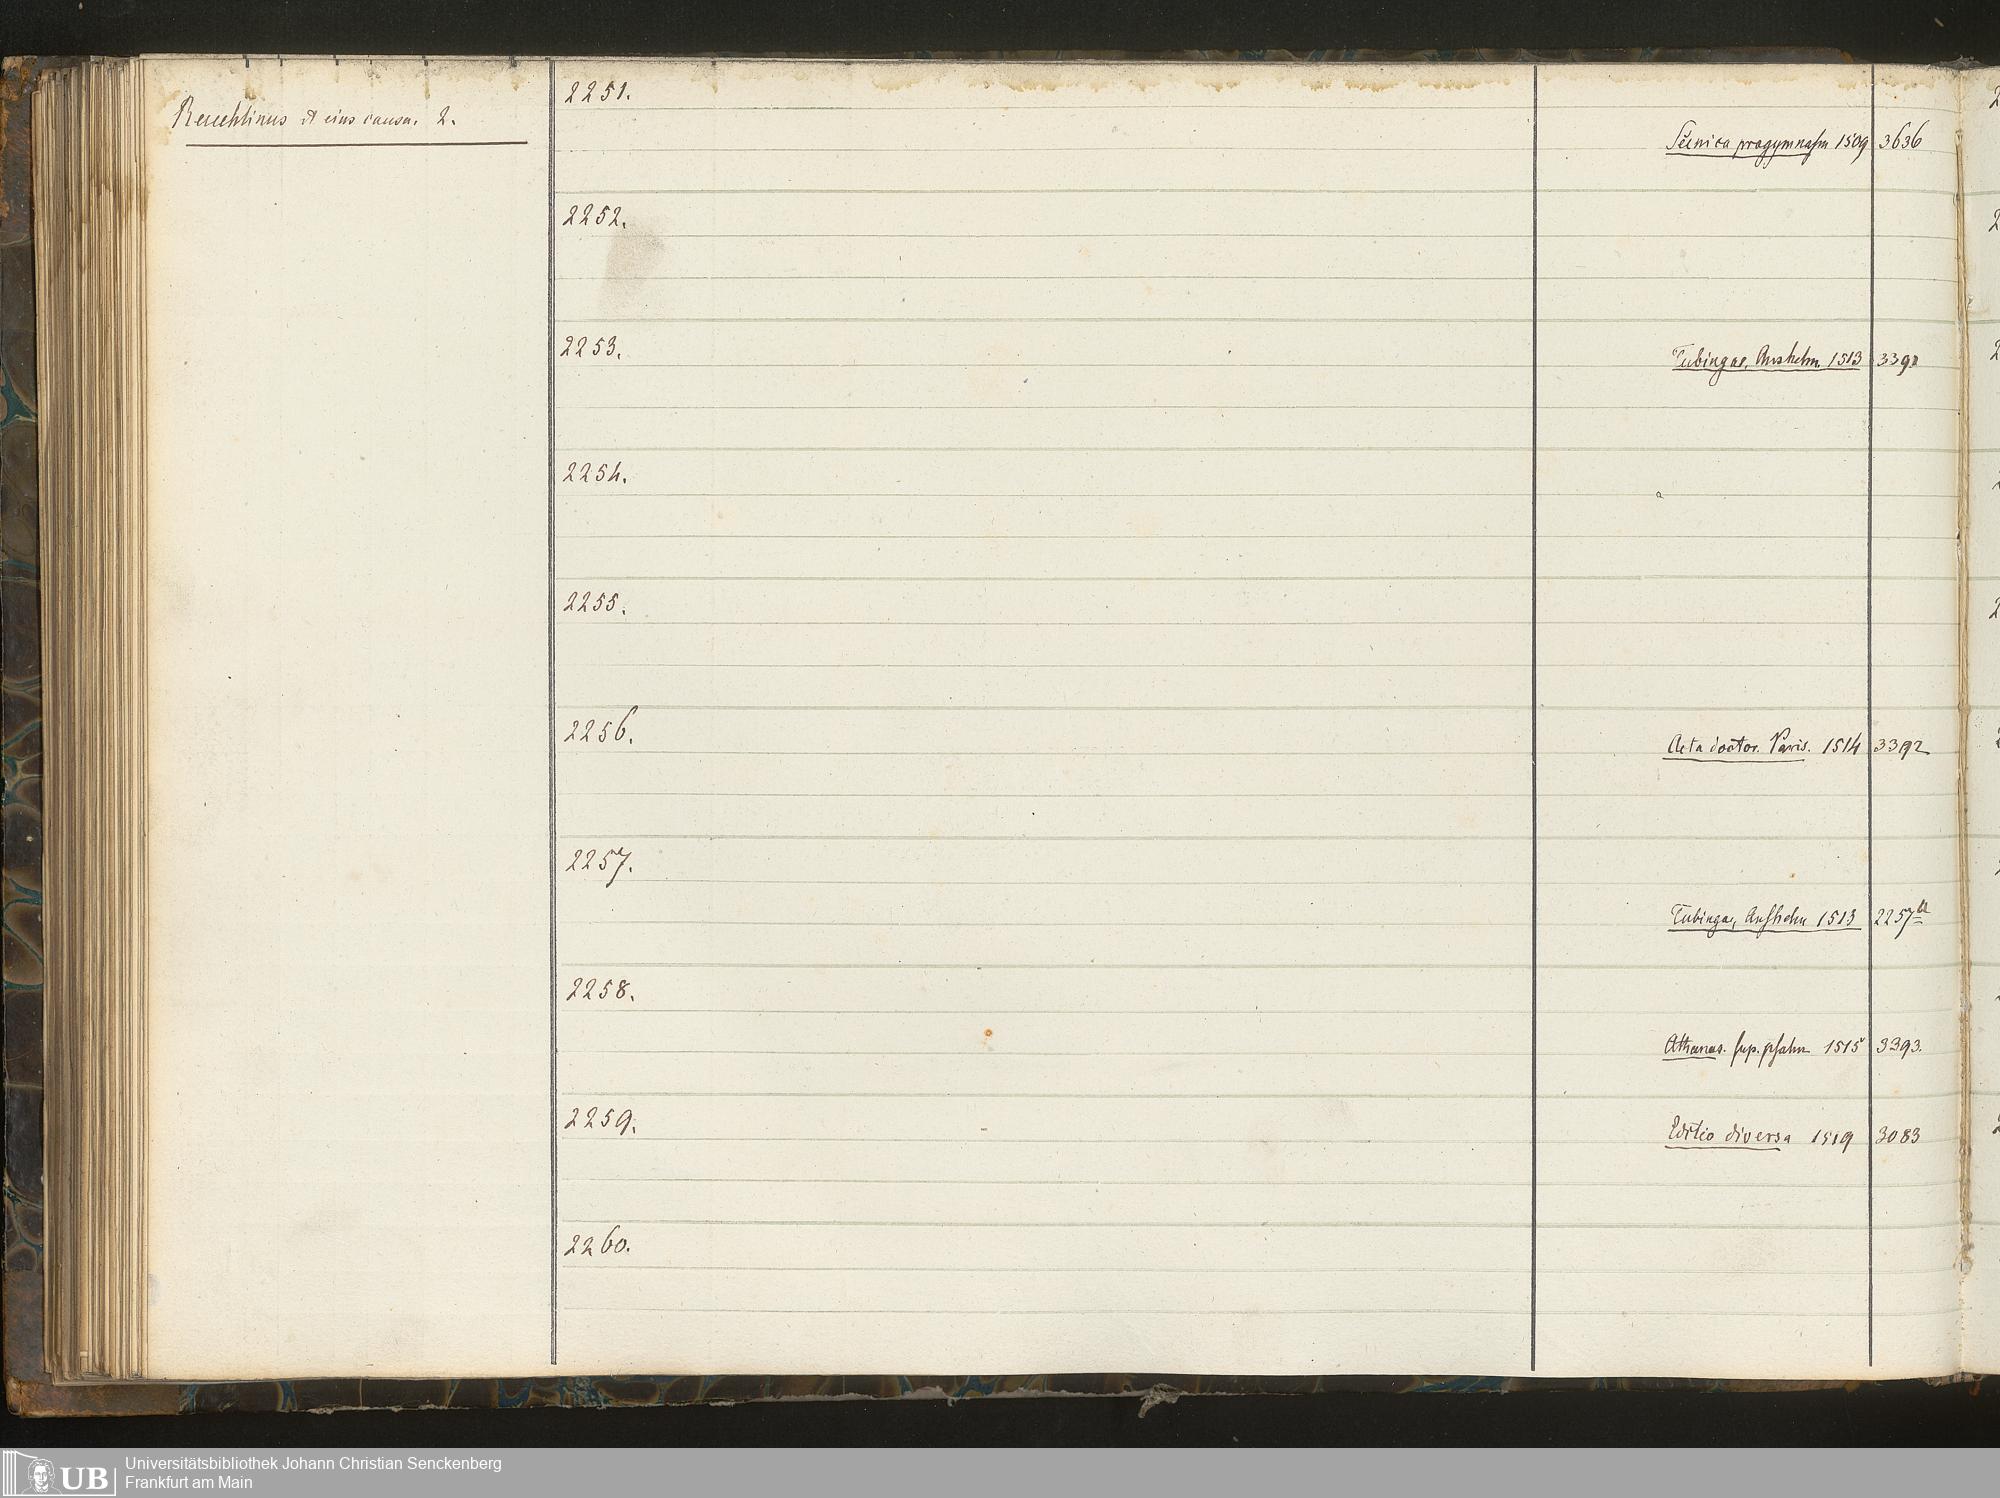 Reuchlinus et eius causa. 2.
2251.
Scenica progymnasm 1509 3636
2252.
2253.
Tubingae, Anshelm 1513 3391
2254.
2255.
2256.
Acta doctor. Paris. 1514 3392
2257.
Tubingae, Anshelm 1513 2257a
2258.
Athanas. sup. psalm 1515 3393.
2259.
Editio diversa 1519 3083
2260.
UB Universitätsbibliothek Johann Christian Senckenberg
Frankfurt am Main